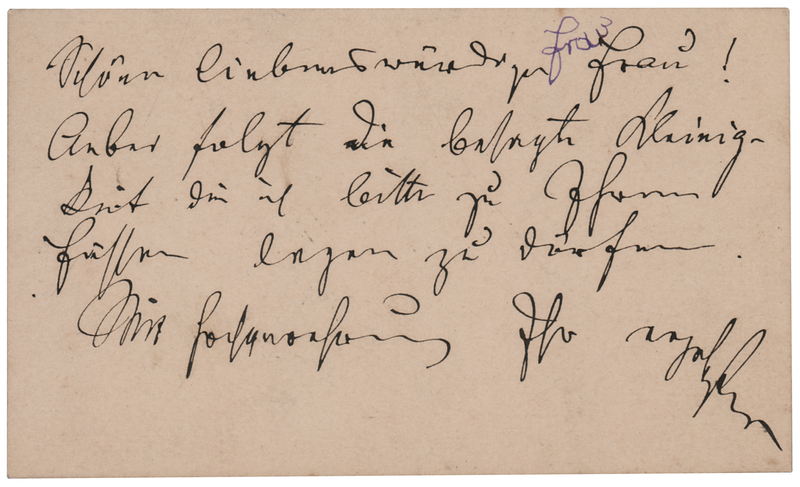 Schöne liebenswürdige Frau Frau!
Anbei folgt die besagte Kleinig-
keit die ich bitte zu Ihren
Füssen legen zu dürfen.
Mit Hochverehrung Ihr ergeb.